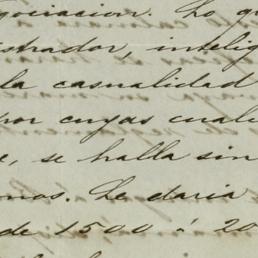 ciacion. Lo q
strador, intelig
la casualidad
por cuyas cuali
e, se halla sin
nos. Le daria
de 1500 á 20